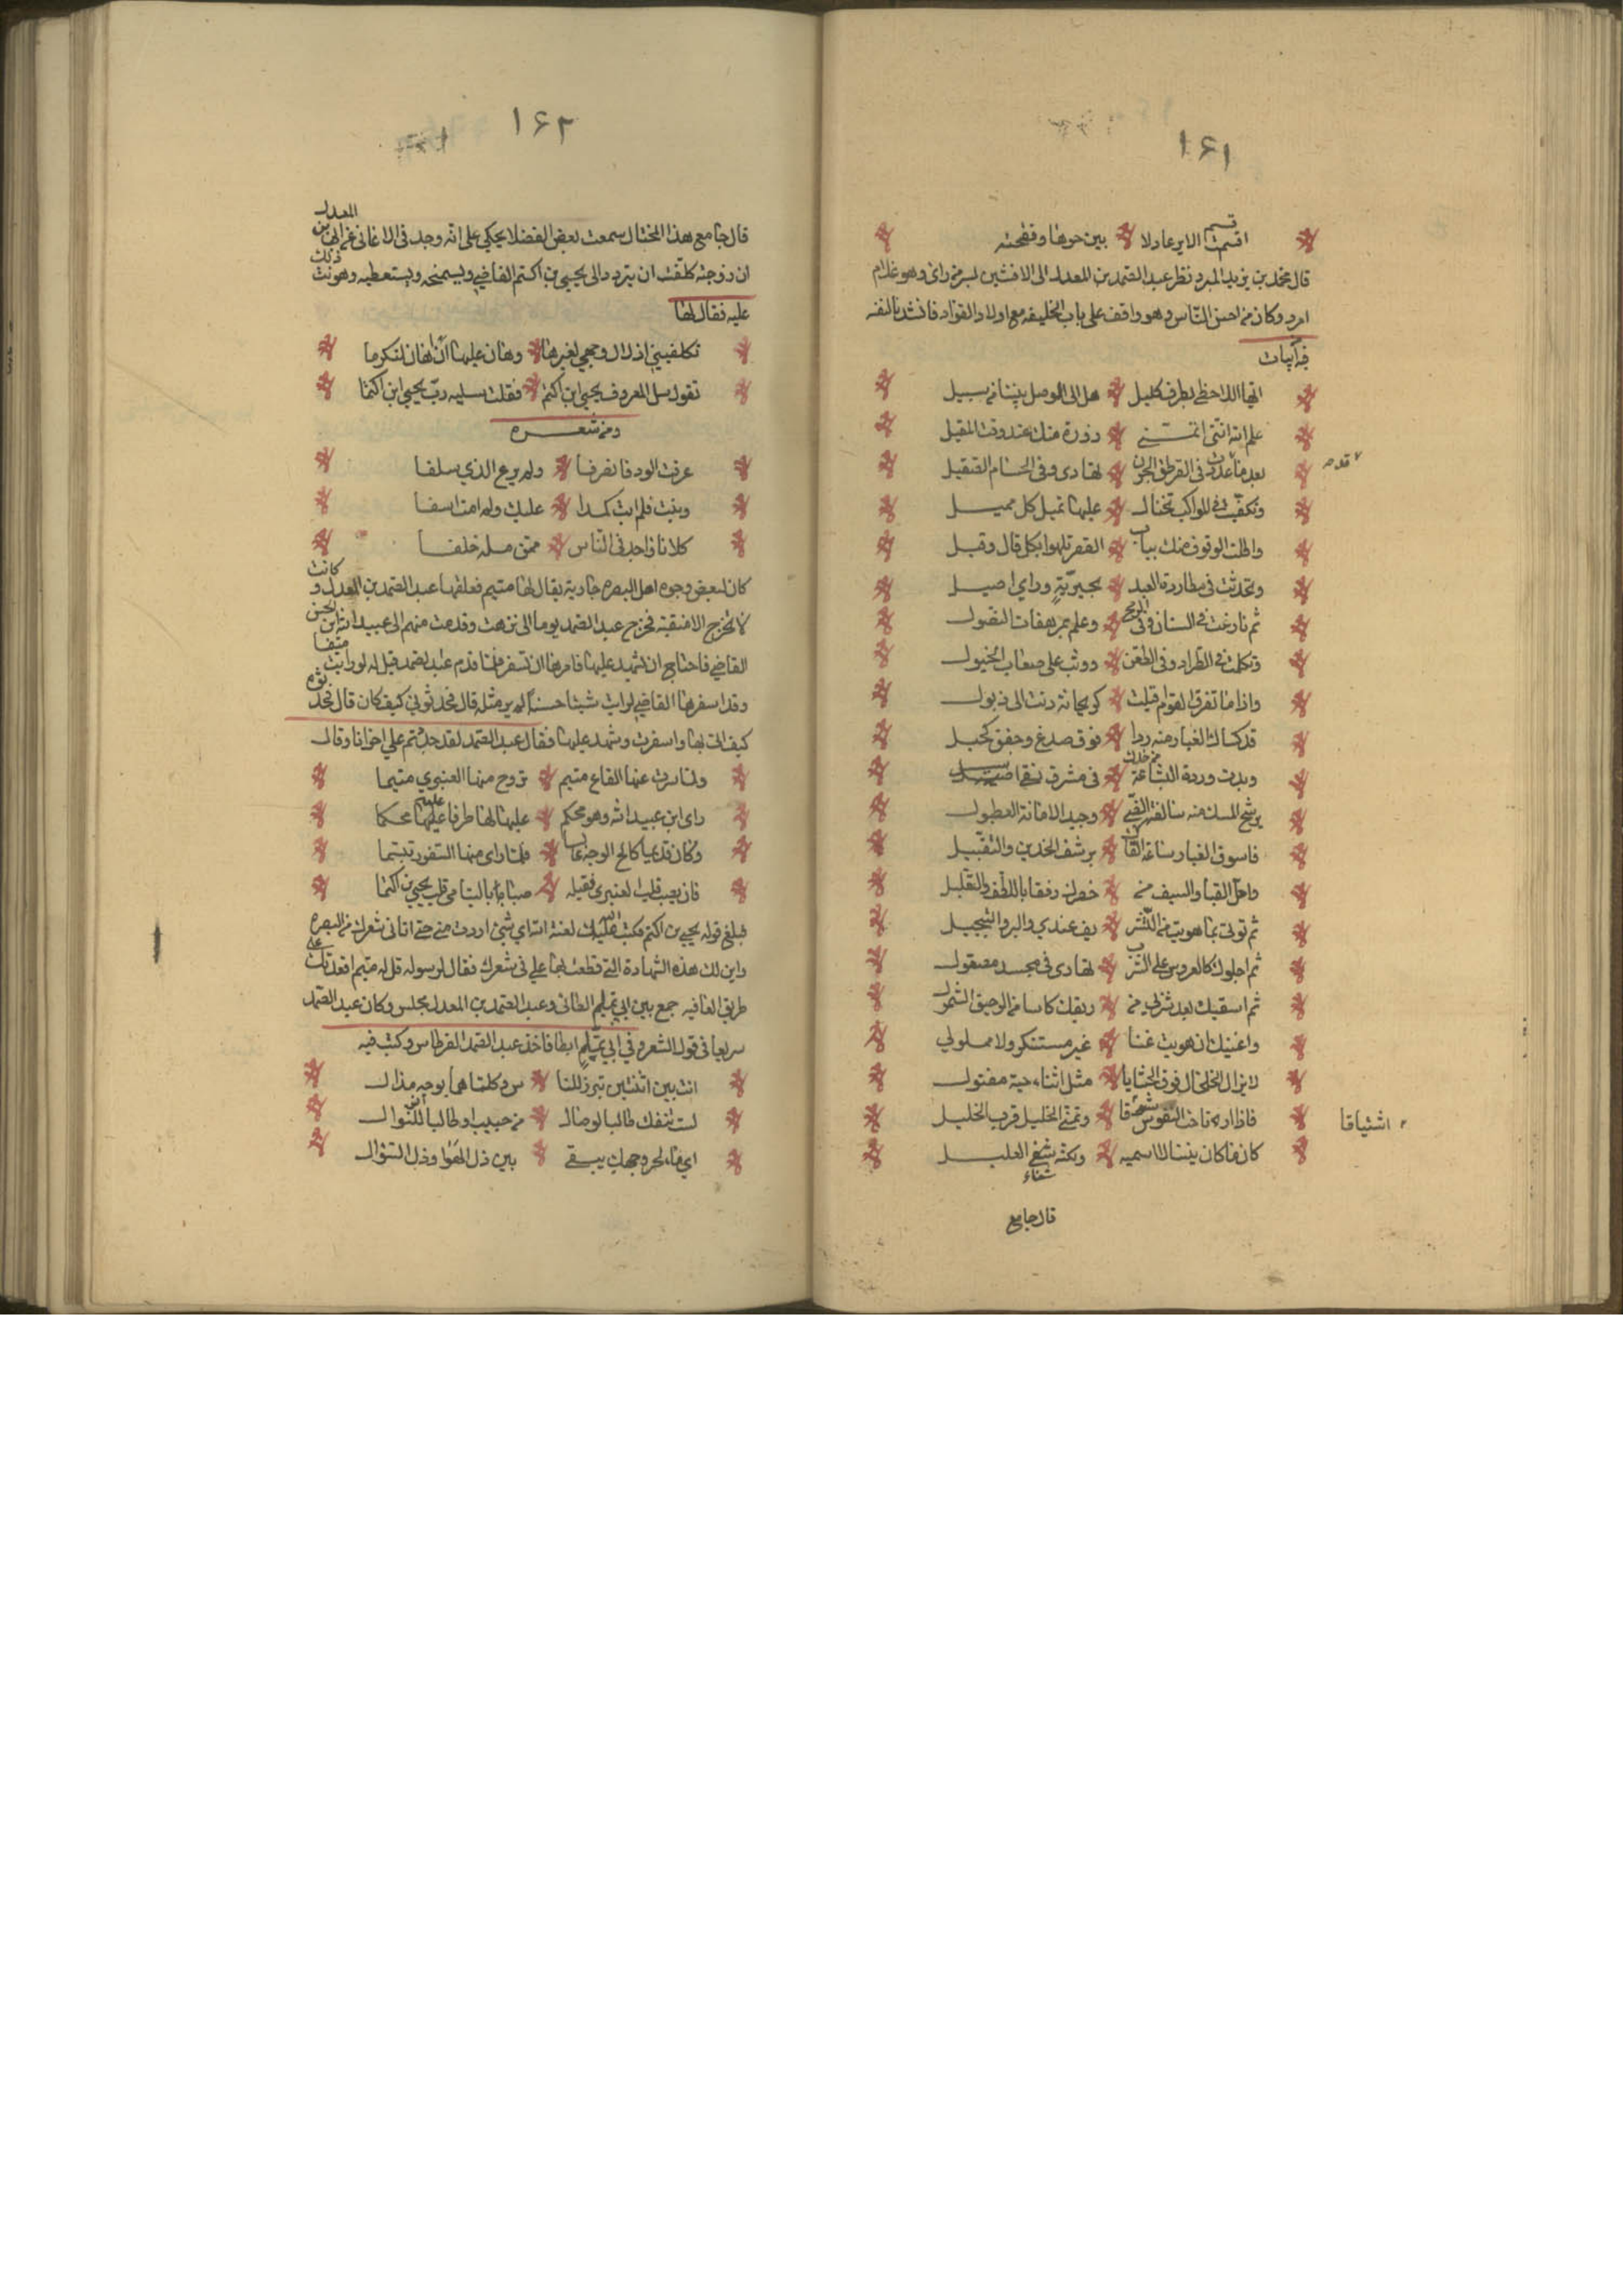 ١٦١
اقسمت الاير عادلا بين حرها وفقحته
قسم
قال محمد بن يزيد المبرد نظر عبد الصمد بن المعدل الى الافشين بسر من راى وهو غلام
امرد وكان من احسن الناس وهو واقف على باب الخليفه مع اولاد القواد فانشدنا لنفسه
فيه ابيات
ايها اللاحظي بطرف كليل هل الى الوصل بيننا من سبيل
علم الله انني اتمنى زورة منك عند وقت المقيل
بعد ما غدوت في القرطق الجون تهادى وفي الحسام الصقيل
قد
وتكفيت في المواكب تختال عليها تميل كل مميل
واطلت الوقوف منك بباب القصر تلهو بكل قال وقيل
وتحدثت في مطاردة الصيد بخبر به وراى اصيل
ثم نازعت في السنان وفي الرمح وعلم بمرهفات النصول
وتكلمت في الطراد وفي الطعن ووثب على صعاب الخيول
واذا ما تفرق القوم اقبلت كريحانة دنت الى ذبول
قد كساك الغبار منه ردا فوق صدغ وجفن كحيل
وبدت وردة الشاعة من خدك في مشرق نقي اسيل
يرشح المسك منه سالفة الظبي وجيد الادمانة العطبول
فاسوف الغبار ساعة القاك برشف الخدين والتقبيل
واحل القبا والسيف من خصرك رفقا باللطف والتقليل
ثم توتى بما هويت من التشريف عندي والبر والتبجيل
ثم اجلوك كالعروس على الشرب تهادى في مجسد مصقول
ثم اسقيك بعد شربي من ريقك كاسا من الرحيق الشمول
واغنيك ان هويت غنا غير مستنكر ولا مملول
لا يزال الخلخال فوق الحشايا مثل اثناء حية مفتول
فاذا ارتاحت النفوس شوقا وتمنى الخليل قرب الخليل
اشتياقا
كان ما كان بيننا لا اسميه ولكنه شفي الغليل
شفاء
قال جامع
١٦٢
قال جامع هذا المختار سمعت بعض الفضلا يحكي على انه وجد في الاغاني عن ابن المعدل
ان زوجته كلفت ان يتردد الى يحيى بن اكثم القاضي ويستمنحه ويستعطيه وهونت ذلك
عليه فقال لها
تكلفيني اذلال وجهي لغيرها وهان عليها ان اهان لتكرما
تقول سل المعروف يحيى ابن اكثم فقلت سليه رب يحيى ابن اكثما
ومن شعره
عرفت الود فانصرفا ولم يرع الذي سلفا
وبنت فلم ابت كمدا عليك ولم امت اسفا
كلانا واجد في الناس ممن مله خلفا
كان لبعض وجوه اهل البصره جارية يقال لها متيم فعلقها عبد الصمد بن المعدل وكانت
لا تخرج الا منقبة فخرج عبد الصمد يوما الى نزهت وقدمت متيم الى عبيد الله ابن الحسن
القاضي فاحتاج ان يشهد عليها فامرها ان تسفر فلما قدم عبد الصمد قيل له لو رايت متيما
وقد اسفرها القاضي لرايت شيئا حسنا لم ير مثله قال فحدثوني كيف كان قال فحدثوه
كيف اتى بها واسفرت وشهد عليها فقال عبد الصمد لقد جلبتم علي احزانا وقال
ولما سرت عنها القناع متيم تروح منها العنبري متيما
راى ابن عبيد الله وهو محكم عليها لها طرفا عليه محكما
وكان قديما كالح الوجه عابسا فلما راى منها السفور تبسما
فان يصب قلب العنبري فقبله صبا باليتامى قلب يحيى بن اكثما
فبلغ قوله يحيى بن اكثم فكتب اليه عليك لعنة الله اي شيء اردت مني حتى اتاني شعرك من البصره
واين لك هذه الشهادة التي قطعت بها علي في شعرك فقال لرسوله قل له متيم اقعدتك على
طريق القافيه جمع بين ابي تمام الطائي وعبد الصمد بن المعدل مجلس وكان عبد الصمد
سريعا في قول الشعر وفي ابي تمام ابطا فاخذ عبد الصمد القرطاس وكتب فيه
انت بين اثنتين تبرز للناس وكلتاهما بوجه مذال
لست تنفك طالبا لوصال من حبيب او طالبا لنوال
اي ماء لحر وجهك يبقى بين ذل الهوا وذل السؤال